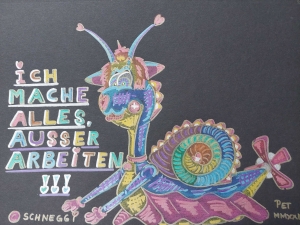 iCH
MACHE
ALLES.
AUSSER
ARBEiTEN
!!!
SCHNEGGY
PET